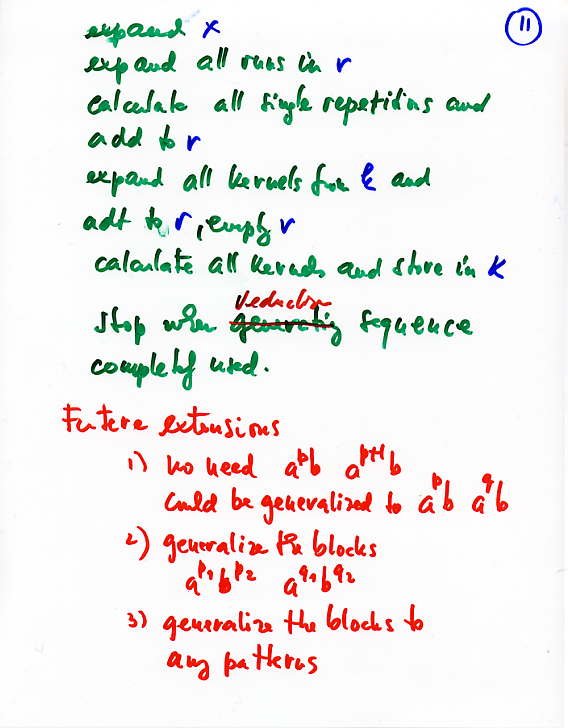 11
expand x
expand all runs in r
calculate all single repetitions and
add to r
expand all kernels from k and
adt to r, empty r
calculate all kernels and store in K
reduction
stop when generating sequence
completely used.
Future extensions
1) no need a^p b a^{p+1} b
could be generalized to a^p b a^q b
2) generalize the blocks
a^{p_1} b^{p_2} a^{q_1} b^{q_2}
3) generalize the blocks to
any patterns